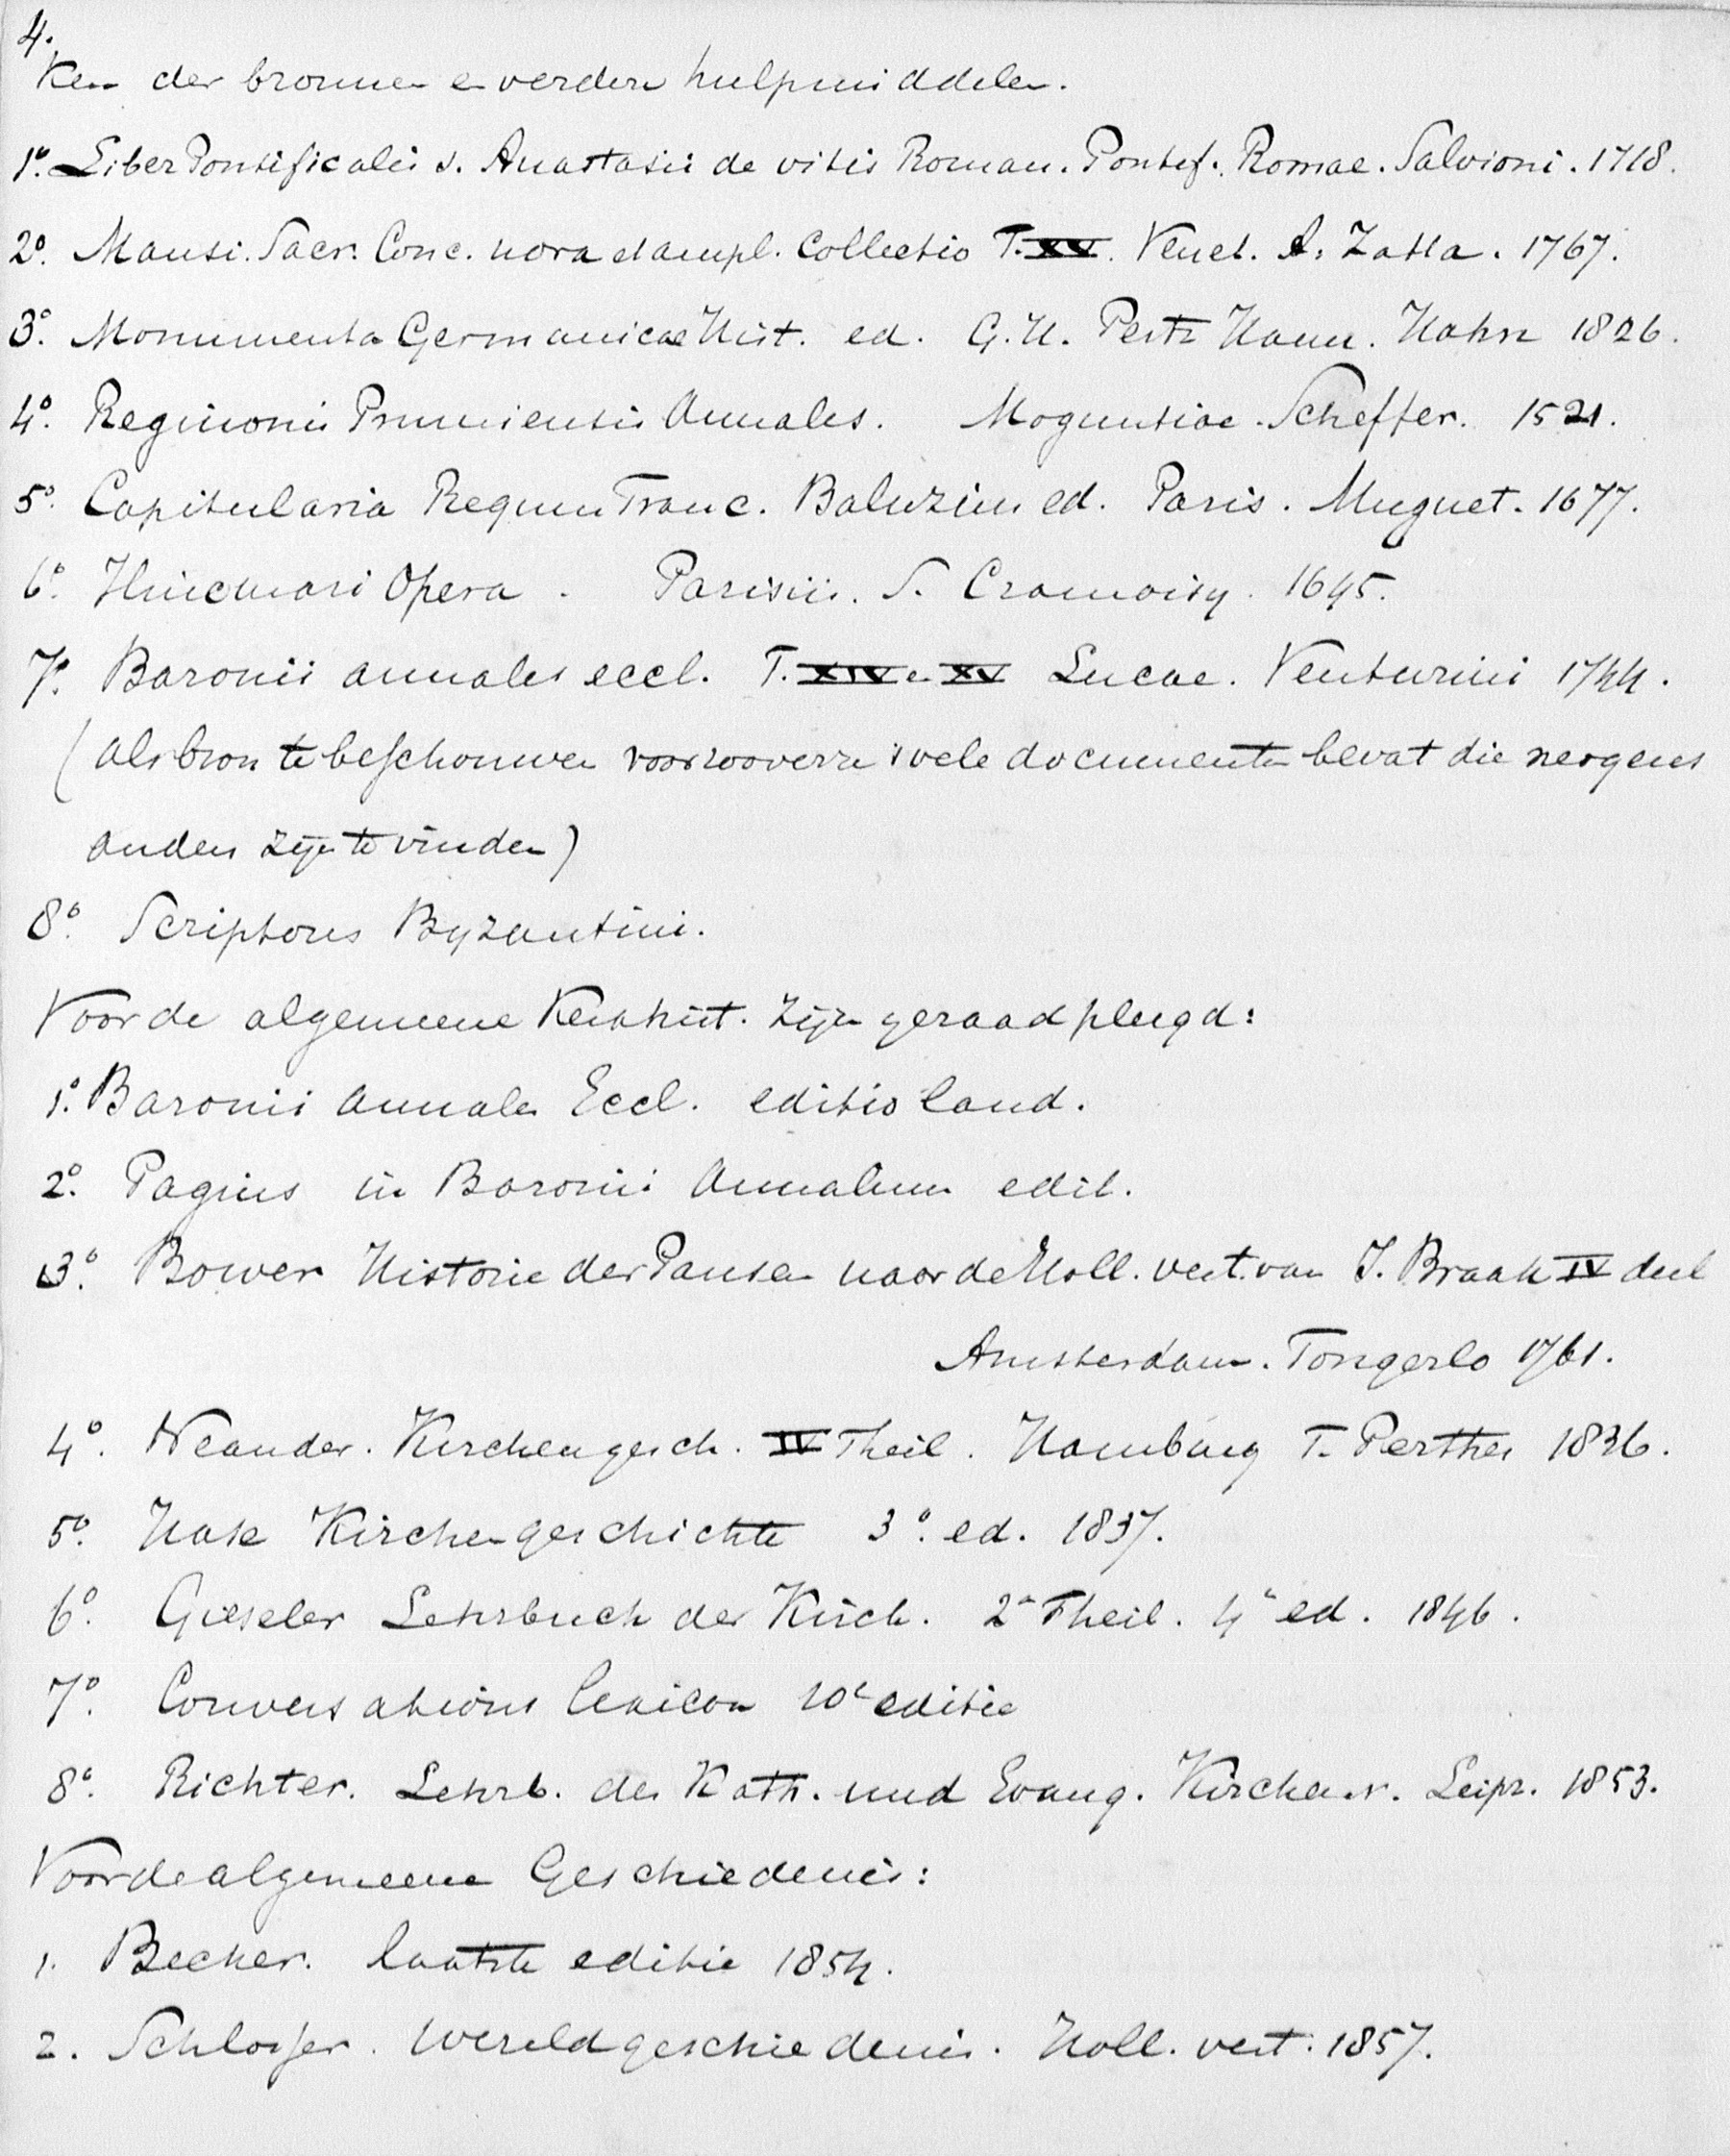 4.
Ken der bronnen en verdere hulpmiddelen.
1º. Liber Pontificalis s. Anastasii de vitis Roman. Pontif. Romae. Salvioni. 1718.
2º. Mansi. Sacr. Conc. nova et ampl. Collectio T. XV. Venet. A. Zatta. 1767.
3º. Monumenta Germanicae Hist. ed. G.H. Pertz Hann. Hahn 1826.
4º. Reginonis Prumiensis Annales. Moguntiae. Scheffer. 1521.
5º. Capitularia Regum Franc. Baluzius ed. Paris. Muguet. 1677.
6º. Hincmari Opera. Parisiis. S. Cramoisy. 1645.
7º. Baronii annales eccl. T. XIV en XV Lucae. Venturini 1744.
(als bron te beschouwen voorzooverre vele documenten bevat die nergens
anders zijn te vinden)
8º. Scriptores Byzantini.
Voor de algemeene Kerkhist. zijn geraadpleegd:
1º. Baronii Annales Eccl. editio laud.
2º. Pagius in Baronii Annalium edit.
3º. Bower Historie der Pausen naar de Holl. vert. van J. Braak IV deel
Amsterdam. Tongerlo 1761.
4º. Neander. Kirchengesch. IV Theil. Hamburg F. Perthes 1836.
5º. Hase Kirchengeschichte 3º. ed. 1837.
6º. Gieseler Lehrbuch der Kirch. 2e Theil. 4e ed. 1846.
7º. Conversations lexicon 10e editie
8º. Richter. Lehrb. des Kath. und Evang. Kirchenr. Leipz. 1853.
Voor de algemeene Geschiedenis:
1. Becker. laatste editie 1854.
2. Schlosser. Wereldgeschiedenis. Holl. vert. 1857.